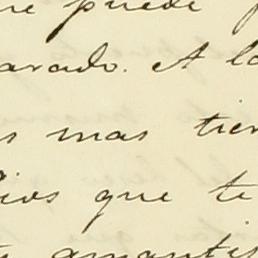 ue puede
arado. A lo
s mas tier
Dios que te
amantis